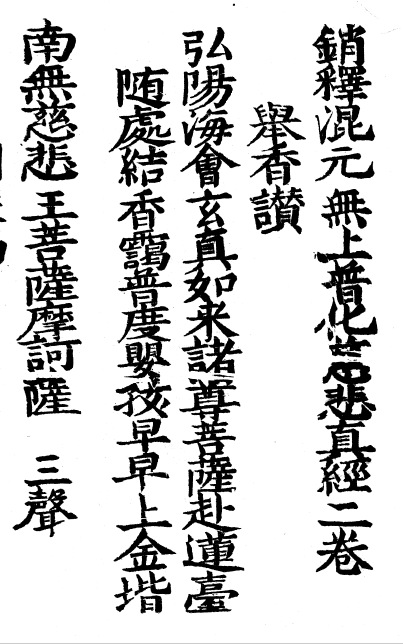 銷釋混元無上普化慈悲真經二卷
舉香讃
弘陽海會玄真如来諸尊菩薩赴蓮臺
随處結香靄普度嬰孩早早上金堦
南無慈悲王菩薩摩訶薩 三聲